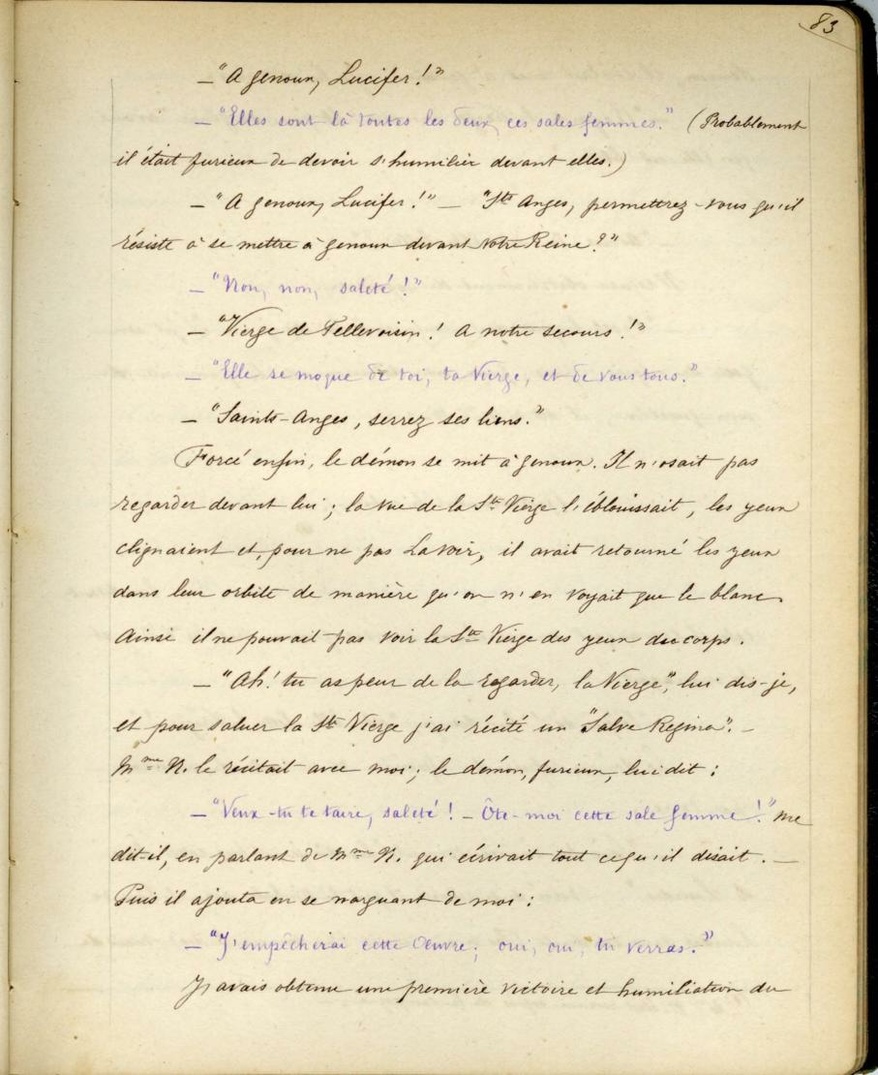 83
— "A genoux, Lucifer!"
— "Elles sont là toutes les deux, ces sales femmes." (Probablement
il était furieux de devoir s'humilier devant elles.)
— "A genoux, Lucifer!" — "Sts Anges, permettrez-vous qu'il
résiste à se mettre à genoux devant Votre Reine?"
— "Non, non, saleté!"
— "Vierge de Pellevoisin! A notre secours!"
— "Elle se moque de toi, ta Vierge, et de vous tous."
— "Saints-Anges, serrez ses liens."
Forcé enfin, le démon se mit à genoux. Il n'osait pas
regarder devant lui; la vue de la Ste Vierge l'éblouissait, les yeux
clignaient et, pour ne pas La voir, il avait retourné les yeux
dans leur orbite de manière qu'on n'en voyait que le blanc.
Ainsi il ne pouvait pas voir la Ste Vierge des yeux du corps.
— "Ah! tu as peur de la regarder, la Vierge", lui dis-je,
et pour saluer la Ste Vierge j'ai récité un "Salve Regina". —
Mme N. le récitait avec moi; le démon, furieux, lui dit:
— "Veux-tu te taire, saleté! — Ôte-moi cette sale femme!" me
dit-il, en parlant de Mme N. qui écrivait tout ce qu'il disait. —
Puis il ajouta en se narguant de moi:
— "J'empêcherai cette Œuvre; oui, oui, tu verras."
J'avais obtenu une première victoire et humiliation du